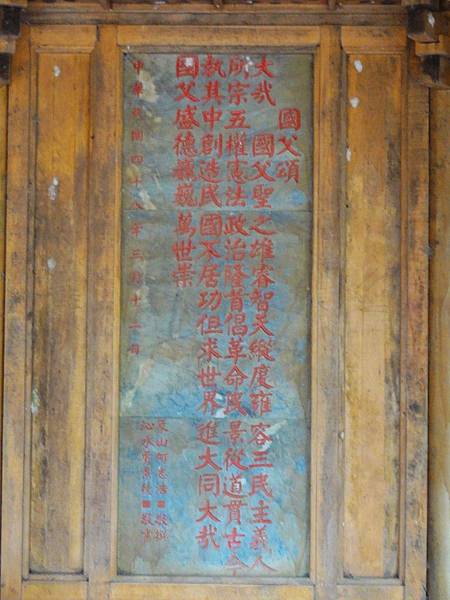 國父頌
大哉　國父聖之雄睿智天縱度雍容三民主義人
所宗五權憲法政治隆首倡革命民景從道貫古今
執其中創造民國不居功但求世界進大同大哉
國父盛德巍巍萬世崇
中華民國四十八年三月十二日
山何志浩 敬撰
沁水 敬書